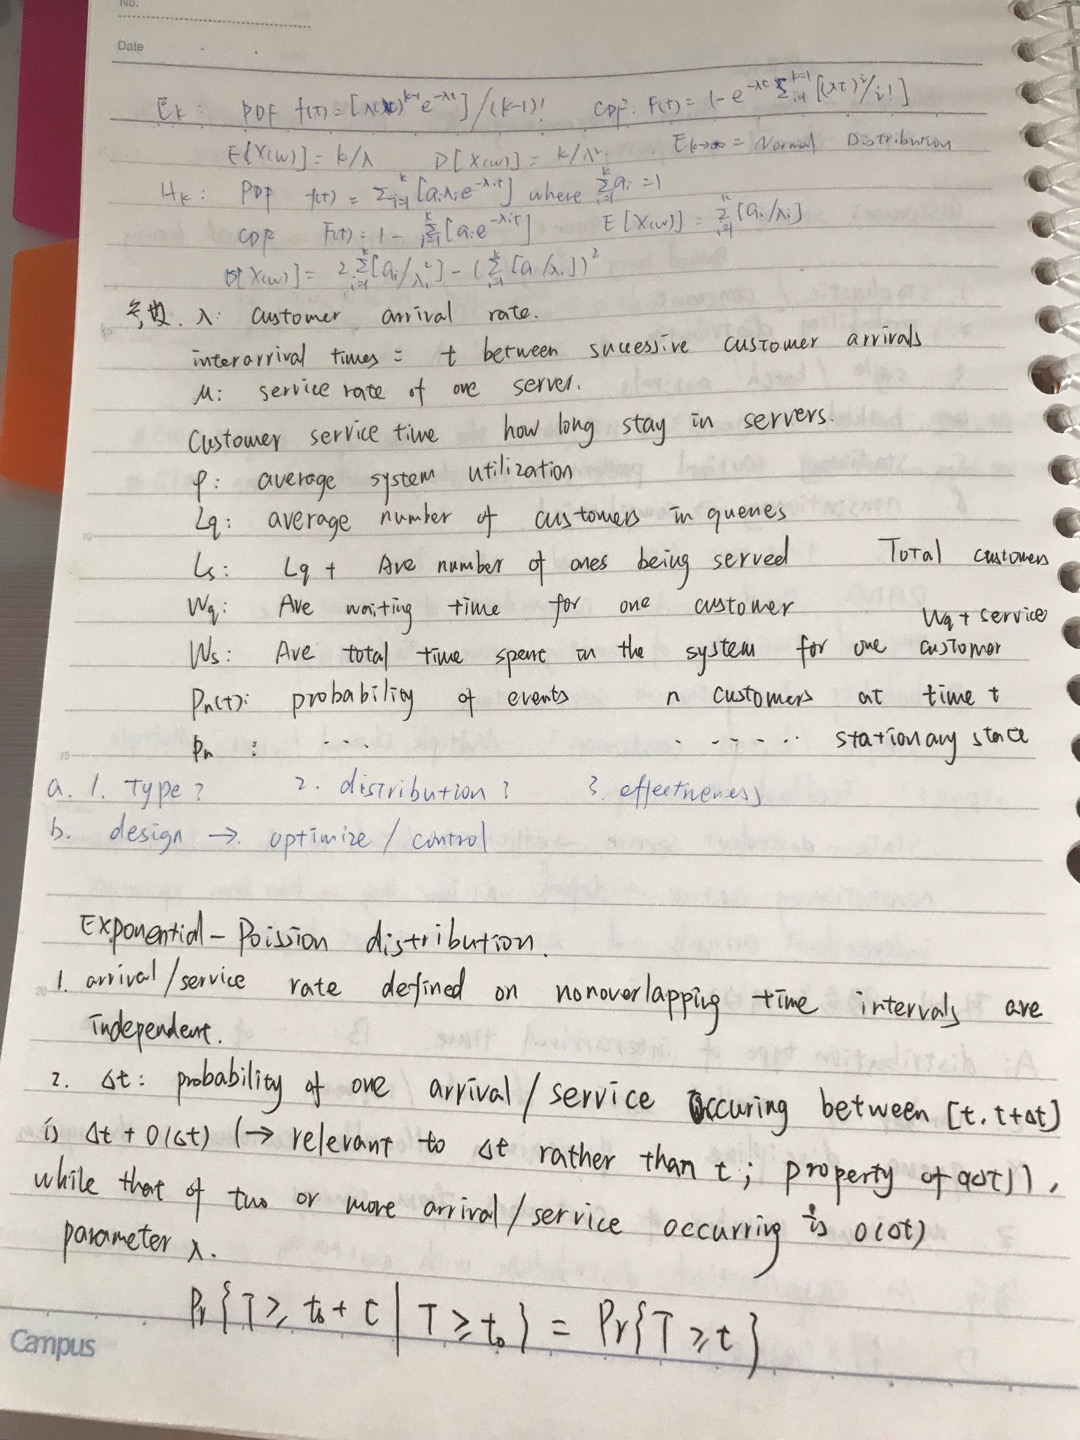 No.
Date
Ek: PDF f(t)=[λ(λt)^{k-1}e^{-λt}]/(k-1)! CDF: F(t)=1-e^{-λt}Σ_{i=1}^{k-1}[(λt)^i/i!]
E[X(w)] = k/λ D[X(w)] = k/λ². E_{k→∞} = Normal Distribution
Hk: PDF f(t) = Σ_{i=1}^{k}[aiλie^{-λit}] where Σ_{i=1}^{k}ai=1
CDF F(t)=1-Σ_{i=1}^{k}[aie^{-λit}] E[X(w)] = Σ_{i=1}^{k}[ai/λi]
D[X(w)]= 2Σ_{i=1}^{k}[ai/λi²]-(Σ_{i=1}^{k}[ai/λi])²
参数. λ: customer arrival rate.
interarrival times = t between successive customer arrivals
μ: service rate of one server.
Customer service time how long stay in servers.
ρ: average system utilization
Lq: average number of customers in queues
Ls: Lq + Ave number of ones being served Total customers
Wq: Ave waiting time for one customer
Wq + service
Ws: Ave total time spent in the system for one customer
Pn(t): probability of events n customers at time t
Pn : ... ..... stationary state
a. 1. Type? 2. distribution? 3. effectneness
b. design → optimize / control
Exponential - Poission distribution.
1. arrival/service rate defined on nonoverlapping time intervals are
independent.
2. Δt: probability of one arrival/service occuring between [t. t+Δt]
is Δt + O(Δt) (→ relevant to Δt rather than t; property of
while that of two or more arrival/service occurring is O(Δt)
parameter λ.
Pr{T≥t₀+t|T≥t₀} = Pr{T≥t}
Campus